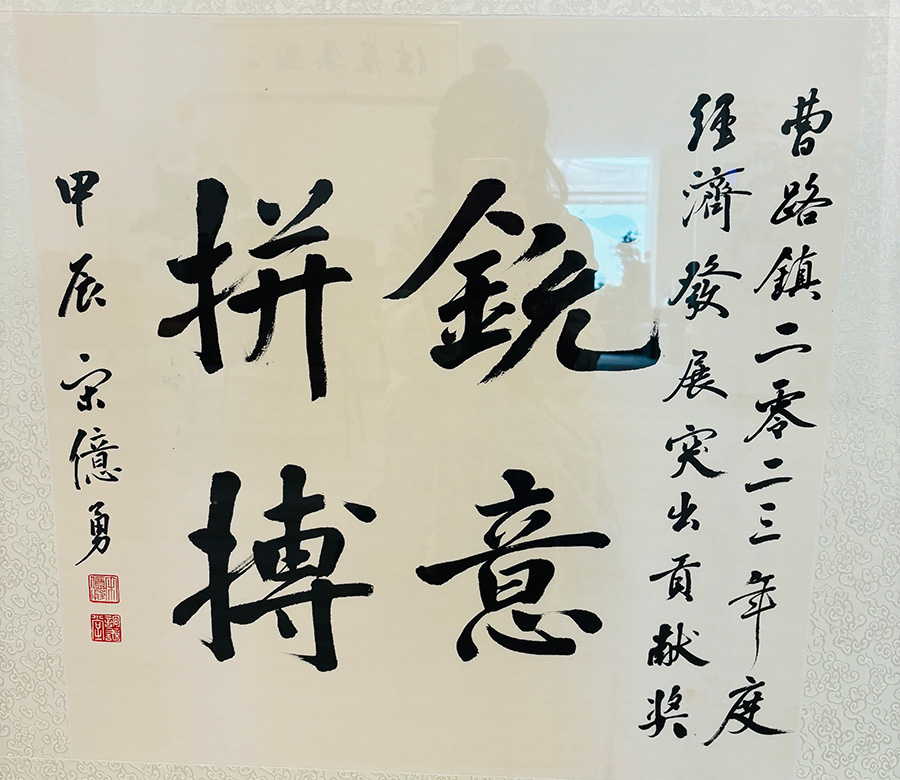 曹路鎮二零二三年度
經濟發展突出貢献奖
鋭意
拼搏
甲辰 宋億勇